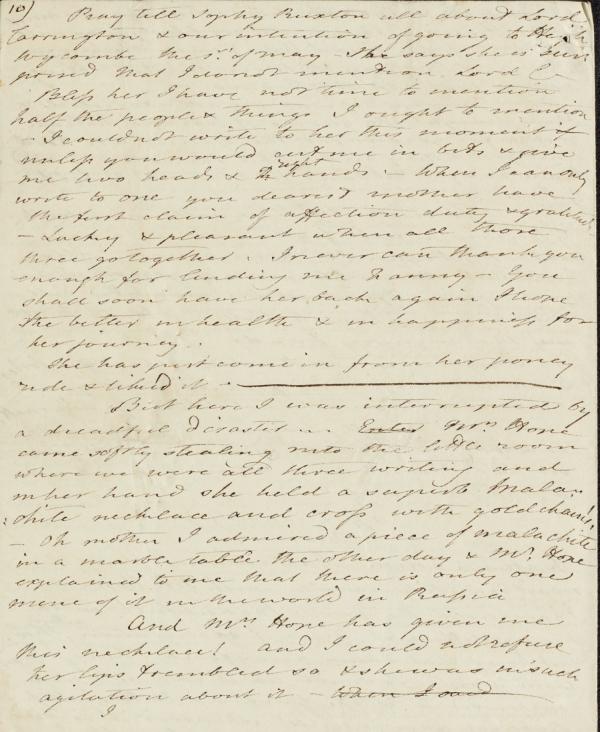 10)
Pray tell Sophy Ruxton all about Lord
Carrington & our intention of going to High
Wycombe the 1st of May – She says she is sur
prised that I do not mention Lord C–
Bless her I have not time to mention
half the people & things I ought to mention
– I could not write to her this moment &
unless you would cut me in bits & give
me two heads & hands – When I can only
write to one you dearest mother have
the first claim of affection duty & gratitude
– Lucky & pleasant when all those
three go together. I never can thank you
enough for lending me Fanny – You
shall soon have her back again I hope
the better in health & in happiness for
her journey.
She has just come in from her poney
ride & liked it –
But here I was interrupted by
a dreadful disaster – Enter Mrs Hope
came softly stealing into the little room
where we were all three writing and
in her hand she held a superb mala-
:chite necklace and cross with gold chains!
– Oh mother I admired a piece of malachite
in a marble table the other day & Mr. Hope
explained to me that there is only one
mine of it in the world in Russia
And Mrs Hope has given me
this necklace! and I could not refuse
her lips trembled so & she was in such
agitation about it – When I said
I